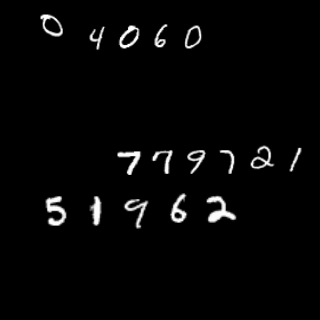 04060
779721
51962